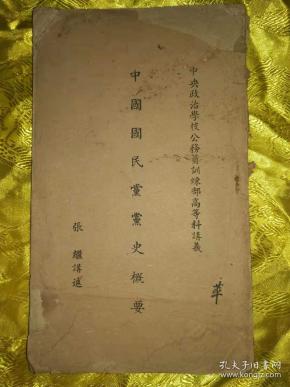 中央政治學校公務員訓練部高等科講義
中國國民黨黨史概要
張繼講述
孔夫子旧书网